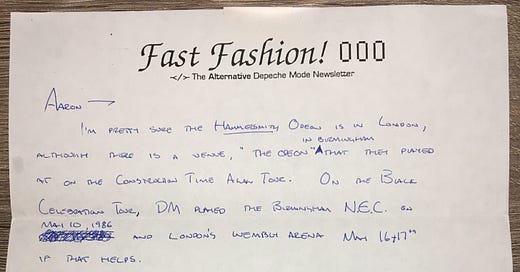 Fast Fashion! 000
</> The Alternative Depeche Mode Newsletter
AARON →
I'M PRETTY SURE THE HAMMERSMITH ODEON IS IN LONDON,
IN BIRMINGHAM
ALTHOUGH THERE IS A VENUE, "THE ODEON" THAT THEY PLAYED
AT ON THE CONSTRUCTION TIME AGAIN TOUR. ON THE BLACK
CELEBRATION TOUR, DM PLAYED THE BIRMINGHAM N.E.C. ON
MAY 10, 1986
AND LONDON'S WEMBLY ARENA MAY 16+17TH
IF THAT HELPS.